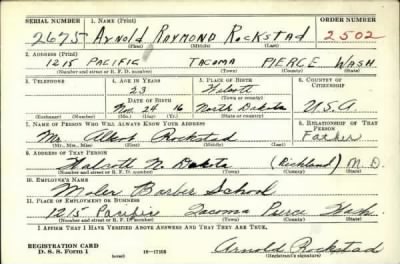 SERIAL NUMBER 1. NAME (Print) ORDER NUMBER
2675 ARNOLD RAYMOND ROCKSTAD 2502
(First) (Middle) (Last)
2. ADDRESS (Print)
1215 PACIFIC TACOMA PIERCE WASH.
(Number and street or R. F. D. number) (Town) (County) (State)
3. TELEPHONE 4. AGE IN YEARS 5. PLACE OF BIRTH 6. COUNTRY OF CITIZENSHIP
23 Walcott
DATE OF BIRTH (Town or county)
24 16 North Dakota U.S.A.
(Exchange) (Number) (Mo.) (Day) (Yr.) (State or country)
7. NAME OF PERSON WHO WILL ALWAYS KNOW YOUR ADDRESS 8. RELATIONSHIP OF THAT PERSON
Mr. Albert Rockstad Father
(Mr., Mrs., Miss) (First) (Middle) (Last)
9. ADDRESS OF THAT PERSON
Walcott N. Dakota (Richland) N. D.
(Number and street or R. F. D. number) (Town) (County) (State)
10. EMPLOYER'S NAME
Moler Barber School
11. PLACE OF EMPLOYMENT OR BUSINESS
1215 Pacific Tacoma Pierce Wash.
(Number and street or R. F. D. number) (Town) (County) (State)
I AFFIRM THAT I HAVE VERIFIED ABOVE ANSWERS AND THAT THEY ARE TRUE.
REGISTRATION CARD
D. S. S. Form 1 (over) Arnold Rockstad
(Registrant's signature)